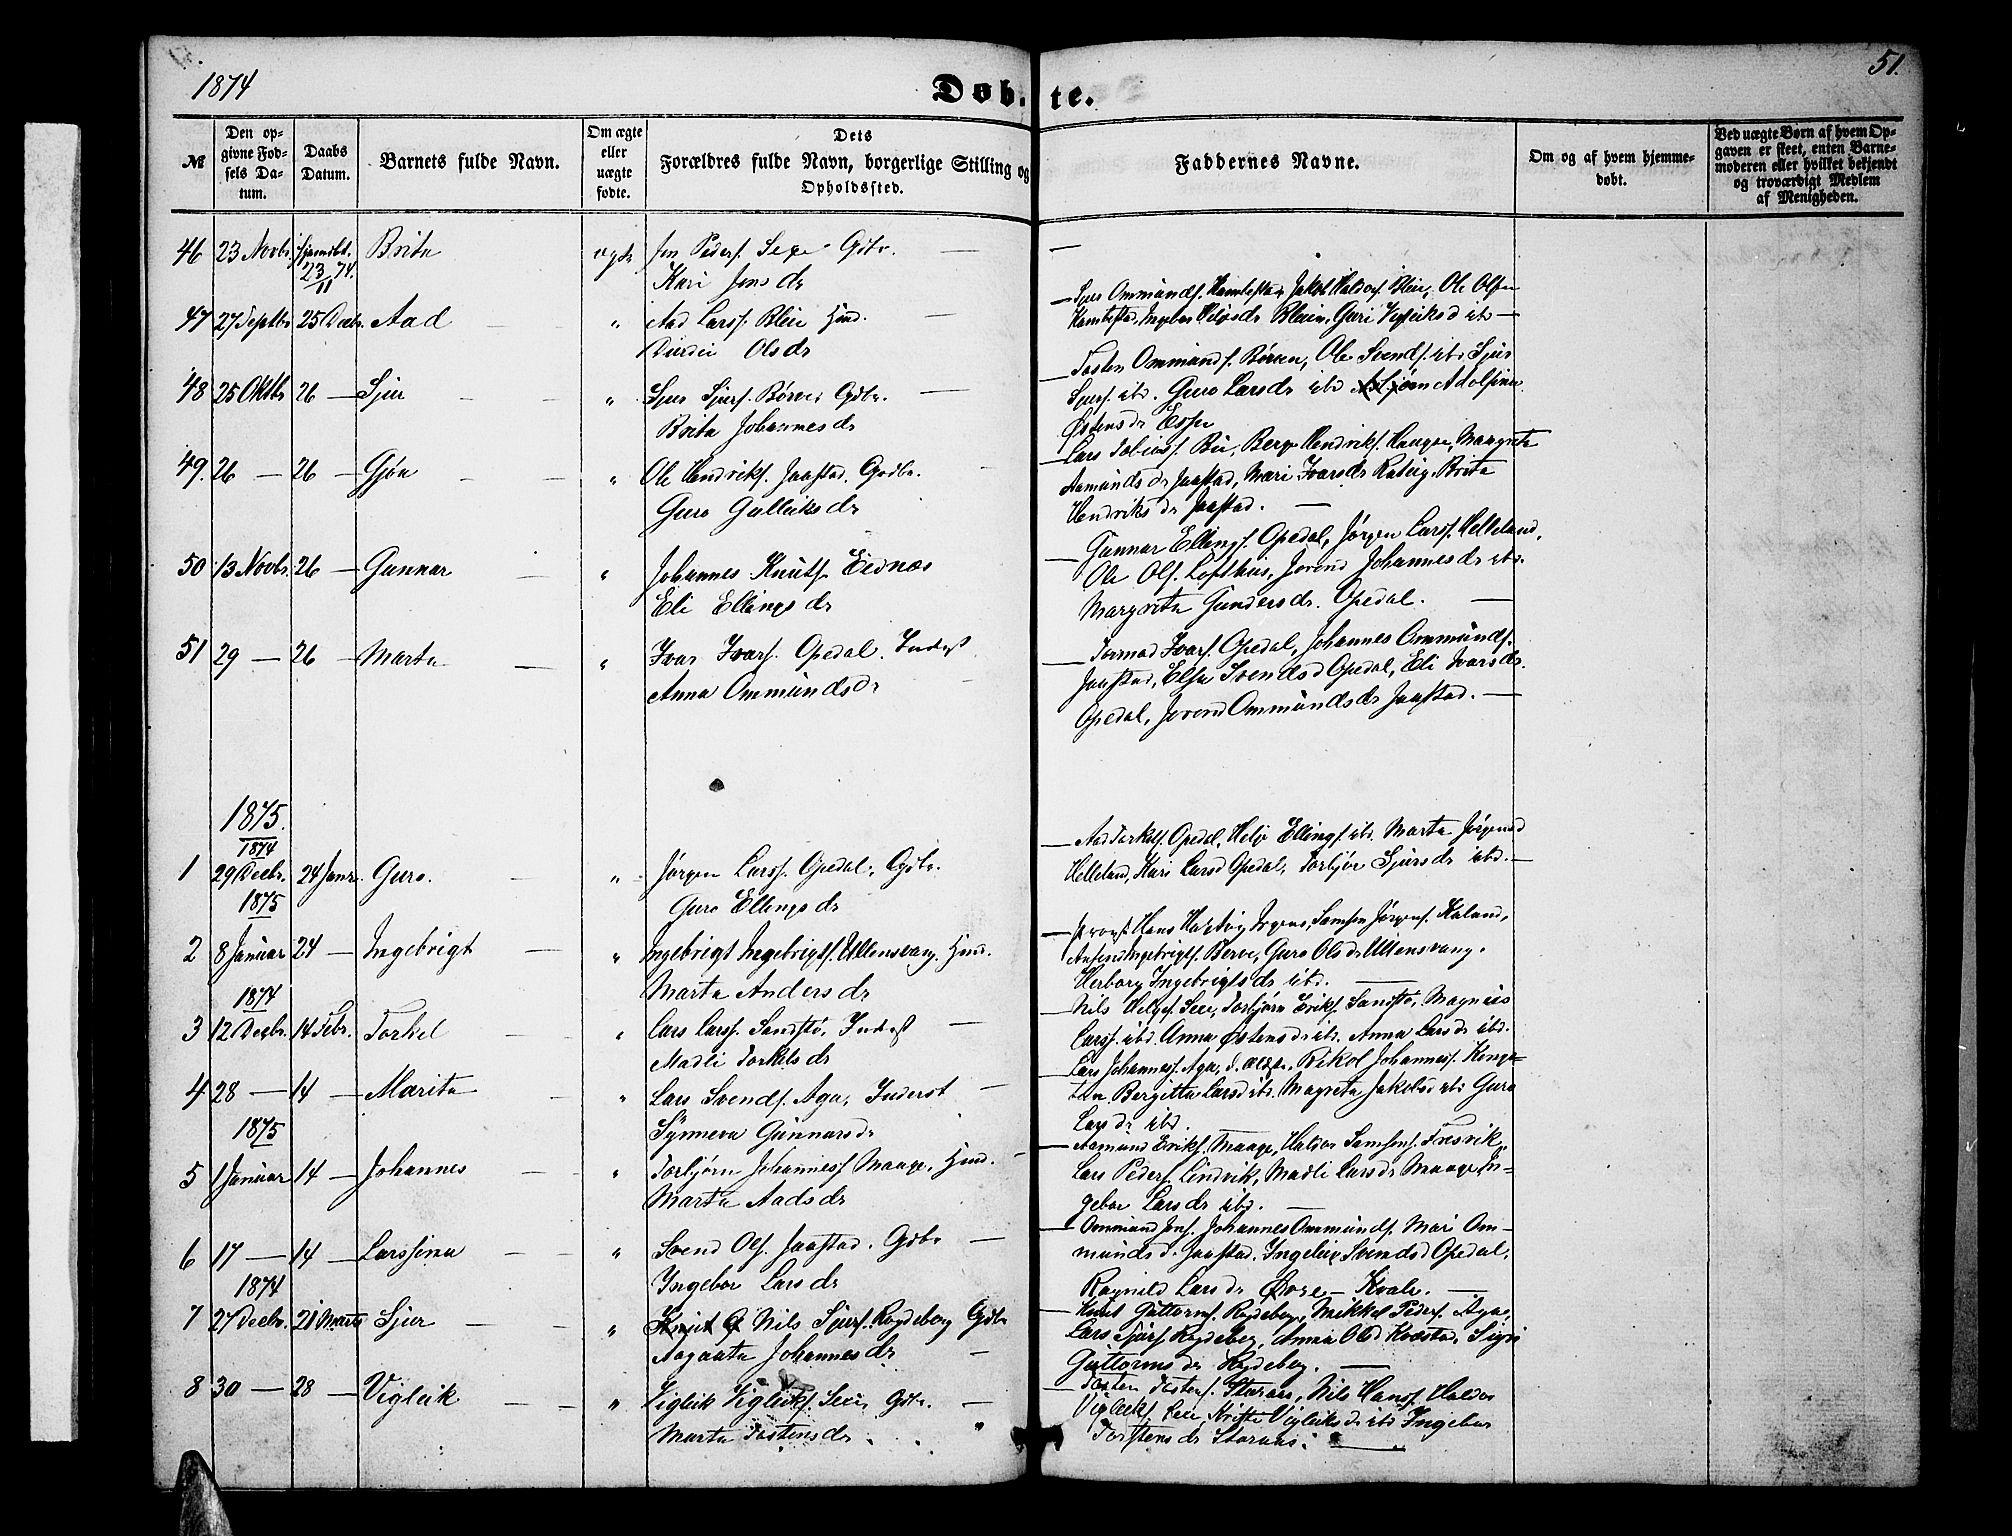 1874
Døbte.
51.
№
Den op-
givne Fød-
sels Da-
tum.
Daabs
Datum.
Barnets fulde Navn.
Om ægte
eller
uægte
fødte.
Dets
Forældres fulde Navn, borgerlige Stilling og
Opholdssted.
Faddernes Navne.
Om og af hvem hjemme-
døbt.
Ved uægte Børn af hvem Op-
gaven er skeet, enten Barne-
moderen eller hvilket bekjendt
og troværdigt Medlem
af Menigheden.
46 23 Novbr hjemdbt. 23/11 74. Brita ægte Jon Peders. Sexe Gdbr. —
Kari Jonsdr
47 27 Septbr 25 Decbr. Aad " Aad Larss. Bleie Hmd. —
Olsdr
— Sjur Ommunds. Hambestad, Jakob Haldors. Bleie, Ole Olsen
Hambestad, Ingebor Bleien, Guri Vigleiksd ibd —
48 25 Oktbr 26 — Sjur " Sjur Sjurs. Børve, Gdbr. —
Brita Johannesdr
— Tosten Ommunds. Børven, Ole Svends. ibd Sjur
Sjurs. ibd. Guro Larsdr ibd Adolfina
Østensdr Espen
49. 26 — 26 — Gjøa " Ole Hendriks. Jaastad. Gdbr.
Guro Gulleiksdr
— Lars Tobias. Bu, Berge Hendriks. Hauge, Margreta
Aamundsdr Jaastad, Mari Ivarsdr Brita
Hendriksdr Jaastad. —
50 13 Novbr. 26 — Gunnar " Johannes Knuts. Eidnæs
Eli Ellingsdr
— Gunnar Ellings. Opedal, Jørgen Larss. Helleland,
Ole Ols. Lofthus, Jorend Johannesdr ibd.
Margreta Gundersdr. Opedal. —
51 29 — 26 — Marta " Ivar Ivars. Opedal. Inderst
Anna Ommundsdr
— Tormod Ivars. Opedal, Johannes Ommunds.
Jaastad, Elsa Svendsd Opedal, Eli Ivarsdr
Opedal, Jorend Ommundsdr Jaastad. —
1875.
1874
1 29 Decbr. 24 Janr. Guro. " Jørgen Larss. Opedal, Gdbr.
Guro Ellingsdr
— Aad Torkels. Opedal, Helje Ellings. ibd. Marta Jørgensd
Helleland, Kari Larsd Opedal, Torbjør Sjursdr ibd. —
1875
2 8 Januar 24 — Ingebrigt " Ingebrigt Ingebrigts. Ullensvang. Hmd.
Marta Andersdr
— Provst Hans Samson Jørgens. Kaland,
Ingebrigts. Berve, Guro Olsdr Ullensvang.
Herborg Ingebrigtsdr ibd. —
1874
3 12 Decbr. 14 Febr. Torkel " Lars Larss. Sandstø, Inderst —
Madli Torkelsdr
Nils Helges. Seie, Torbjørn Eriks. Sandstø, Magnus
Larss. ibd. Anna Østensdr ibd. Anna Larsdr ibd.
4 28 — 14 — Marita " Lars Svends. Aga, Inderst —
Synneva Gunnarsdr
— Lars Johanness. Aga, d. ældre, Nikol Johanness.
Bergitta Larsd ibd. Magreta Jakobsd ibd Guro
Larsdr ibd.
1875
5 1 Januar 14 — Johannes " Torbjørn Johanness. Maage, Hmd. —
Marta Aadsdr
— Aamund Eriks. Maage, Haldor Samsons. Fresvik,
Lars Peders. Lindvik, Madli Larsdr Maage In-
gebor Larsdr ibd. —
6 17 — 14 — Larssina " Svend Ols. Jaastad. Gdbr —
Ingebor Larsdr
— Ommund Jons. Johannes Ommunds. Mari Om-
mundsd. Jaastad. Ingeleiv Svendsd Opedal,
Ragnild Larsdr Øvre- Kvale. —
1874
7 27 Decbr. 21 Marts Sjur " Nils Sjurs. Rogdeberg Gdbr
Aagaata Johannesdr —
— Knut Guttorms. Rogdeberg, Mikkel Peders. Aga,
Lars Sjurs. Rogdeberg, Anna Olsd Kvæstad, Sigri
Guttormsdr Rogdeberg. —
8 30 — 28 — Vigleik " Vigleik Vigleiks. Seie, Gdbr. —
Marta Tostensdr
— Tosten Tostens. Staraas, Nils Hanss. Haldor
Vigleiks. Seie, Vigleiksdr ibd Ingebor
Torstensdr Staraas. —